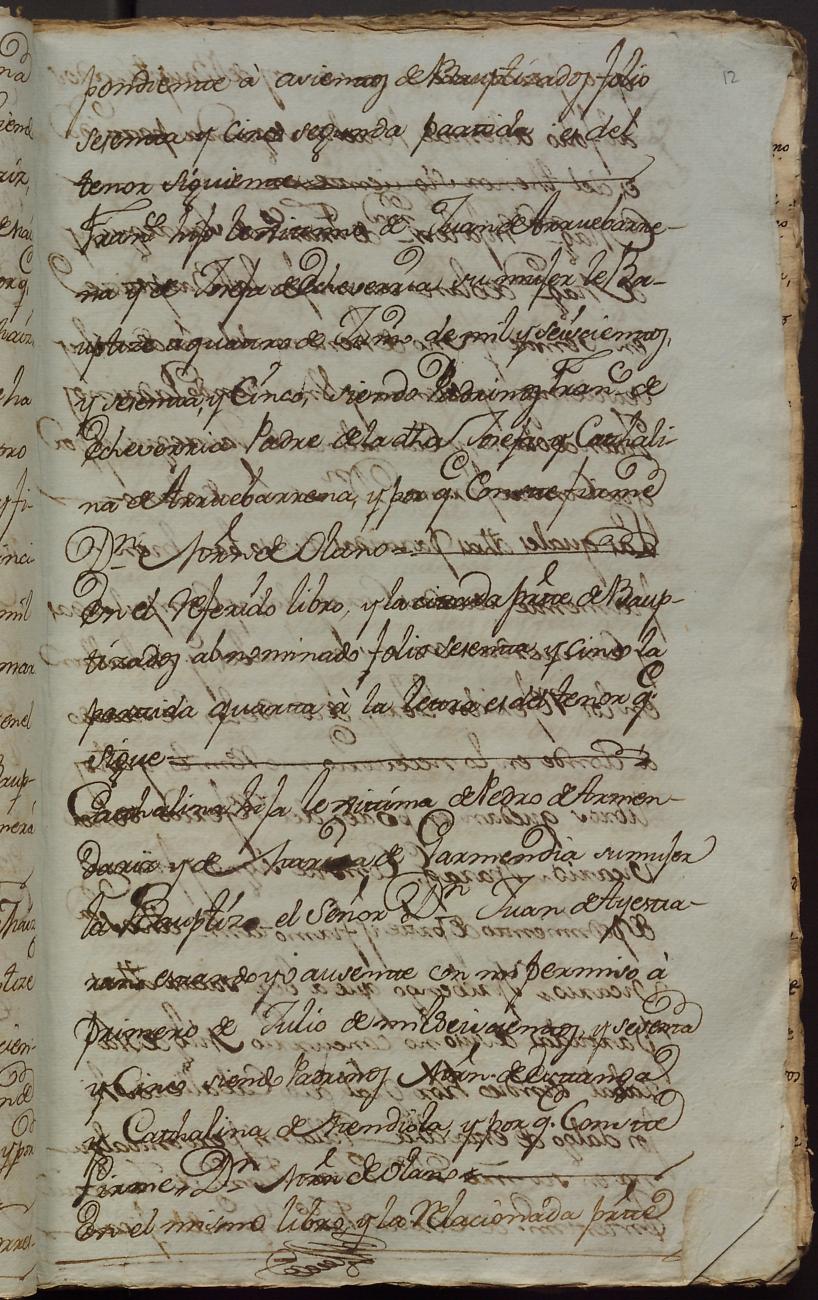 12
pondiente à asientos de Bauptizados folio
sesenta y cinco segunda partida es del
tenor siguiente
Franco hijo lexitimo de Juan de Arruebarre-
na y de Josefa de Echeverria su mujer le Ba-
uptize a quatro de de mil y seiscientos,
y sesenta, y Cinco, siendo Padrinos Franco de
Echeverria Padre de la dha Josefa y Cathali-
na de Arruebarrena, y por q. Conste firme
Dn. Mrn. de Olano
En el referido libro, y la citada parte de Baup-
tizados al nominado folio sesenta y cinco la
partida quarta à la letra es del tenor q.
sigue
Cathalina hija lexitima de Pedro de Armen-
dariz y de Maria de Garmendia su mujer
la Bauptizo el Señor Dn Juan de Ayesta-
ran estando yo ausente con mi permiso à
primero de Julio de mil seiscientos y sesenta
y Cinco siendo Padrinos Mrn. de
y Cathalina de Mendiola, y por q. Conste
firme, Dn Mrn de Olano
En el mismo libro y la relacionada parte